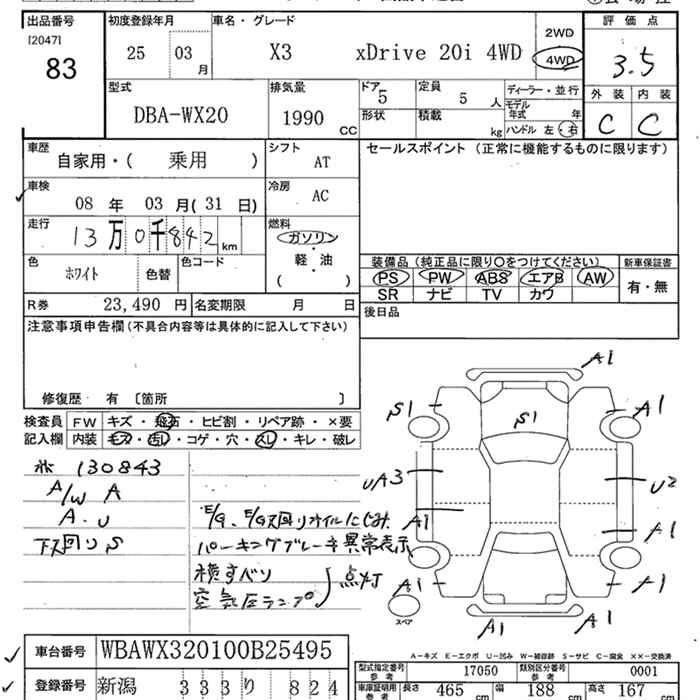 出品番号 初度登録年月 車名・グレード 評価点
[2047]
83
25 03 月
X3 xDrive 20i 4WD
2WD
4WD
3.5
型式 排気量 ドア 定員 ディーラー・並行 外装 内装
DBA-WX20 1990 CC
5 5 人
モデル年式 年
形状 積載 kg ハンドル 左・右
C C
車歴 シフト セールスポイント (正常に機能するものに限ります)
自家用・( 乗用 ) AT
車検 冷房
08 年 03 月( 31 日) AC
走行 燃料
13万0千842 km
ガソリン
軽・油
( )
色 色替 色コード
ホワイト
装備品 (純正品に限り○をつけてください) 新車保証書
PS PW ABS エアB AW 有・無
SR ナビ TV カワ
R券 23,490 円 名変期限 月 日
後日品
注意事項申告欄 (不具合内容等は具体的に記入して下さい)
修復歴 有 〔箇所 〕
検査員記入欄
FW キズ・飛石・ヒビ割・リペア跡・×要
内装 モス・汚レ・コゲ・穴・スレ・キレ・破レ
130843
A/W A
A.U
下回りS
E/G、E/G下回りオイルにじみ
パーキングブレーキ異常表示
横すべり
空気圧ランプ
点灯
A1
S1 S1 A1
UA3 U2
A1 A1
A1 A1
スペア
A1 A1
A-キズ E-エクボ U-凹み W-補修跡 S-サビ C-腐食 XX-交換済
車台番号 WBAWX320100B25495
型式指定番号 参考 17050 類別区分番号 参考 0001
登録番号 新潟 333 り 824
車庫証明用 参考 長さ 465 cm 幅 188 cm 高さ 167 cm